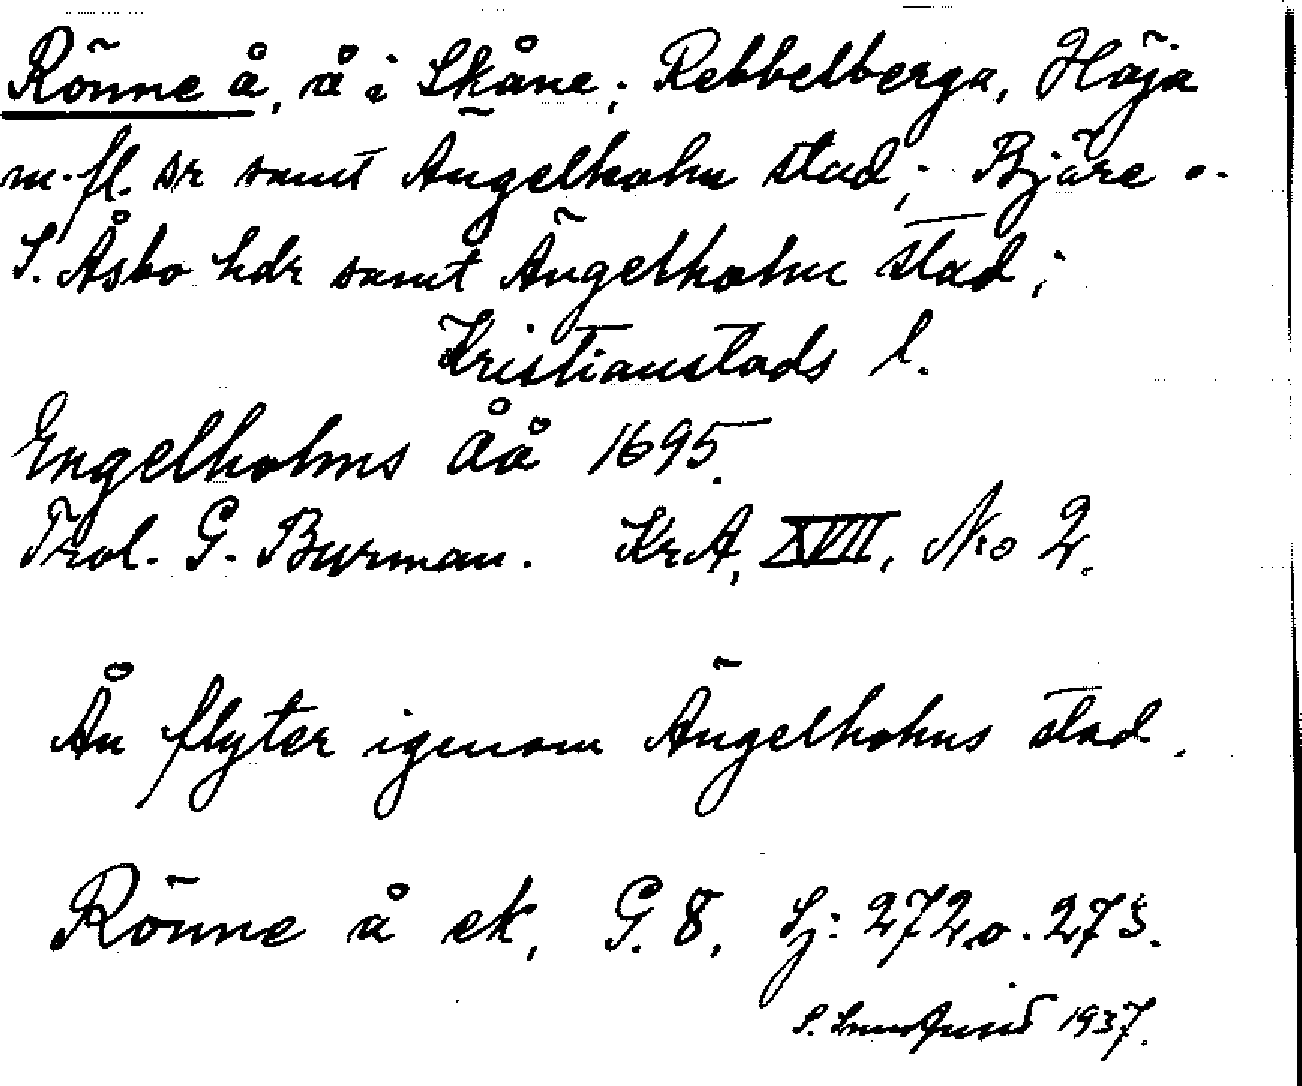 Rönne å, å i Skåne; Rebbelberga, Höja
m. fl. sr samt Ängelholm stad; Bjäre o.
S. Åsbo hdr samt Ängelholm stad;
Kristianstads l.
Engelholms åå 1695.
Trol. G. Burman. KrA, XVII, No 2.
Ån flyter igenom Ängelholms stad.
Rönne å ek, G. 8, Sj: 272 o. 273.
S. 1937.